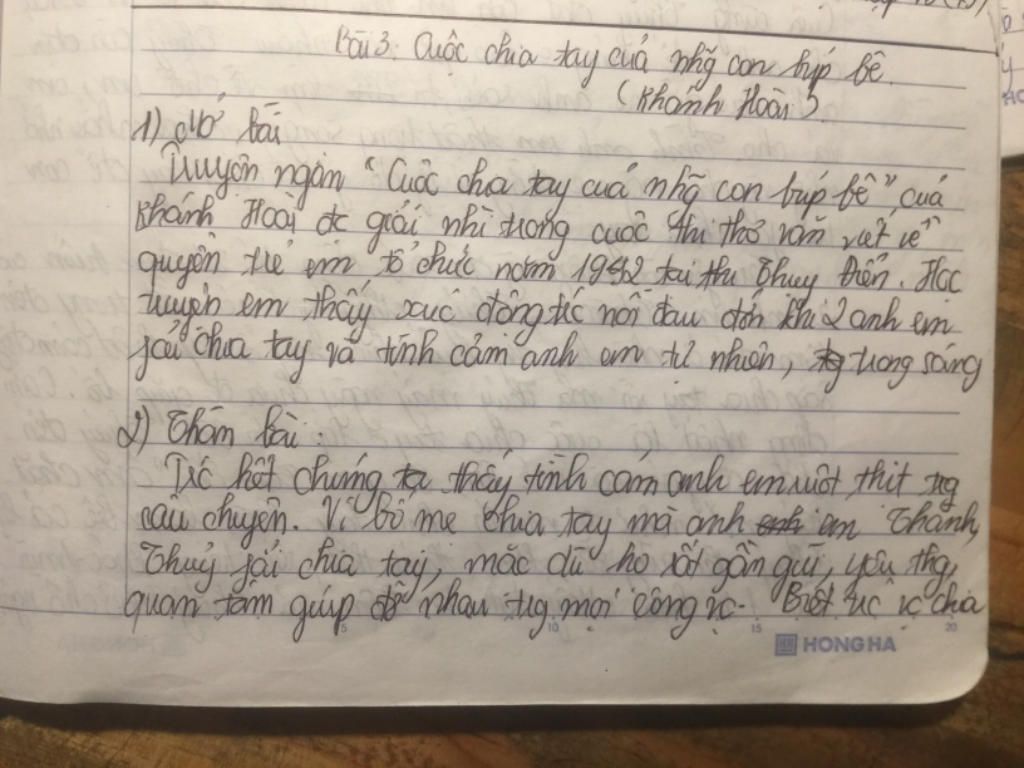 Bài 3. Cuộc chia tay của nhg̃ con búp bê.
(Khánh Hoài).
1) Mở bài
Truyện ngắn "Cuộc chia tay của nhg̃ con búp bê" của
Khánh Hoài đc giải nhì trong cuộc thi thơ văn viết về
quyền trẻ em tổ chức năm 1992 tại thi Thuỵ Điển. Học
truyện em thấy xúc động trc nỗi đau đớn khi 2 anh em
fải chia tay và tình cảm anh em tự nhiên, trong sáng
2) Thân bài:
Trc hết chúng ta thấy tình cảm anh em ruột thịt trg
câu chuyện. Vì bố mẹ chia tay mà anh em Thành,
Thuỷ fải chia tay, mặc dù họ rất gần gũi, yêu thg,
quan tâm giúp đỡ nhau trg mọi công vc. Biết trc vc chia
5 10 15 20
HONG HA